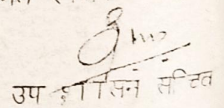 उप शासन सचिव